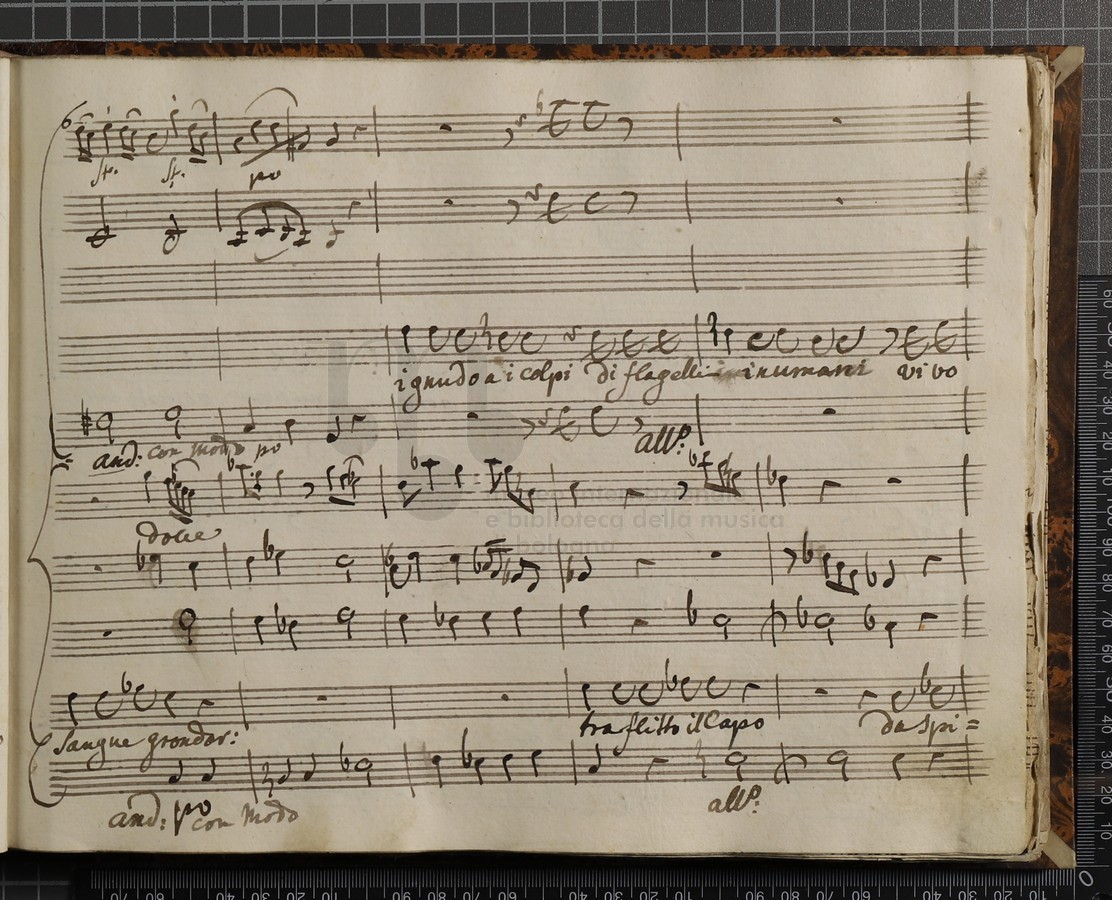 6
st. st. po
ignudo a i colpi di flagelli inumani vivo
and: con modo po all.o
dolce
e biblioteca della musica
Sangue grondar: traflitto il Capo da spi=
and: po con modo all.o